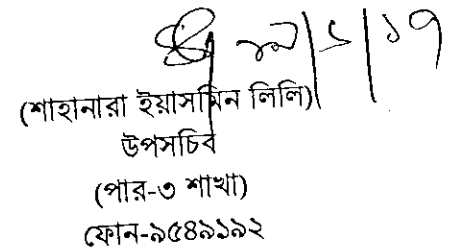 (শাহানারা ইয়াসমিন লিলি)
উপসচিব
(পার-৩ শাখা)
ফোন-৯৫৪৯১৯২